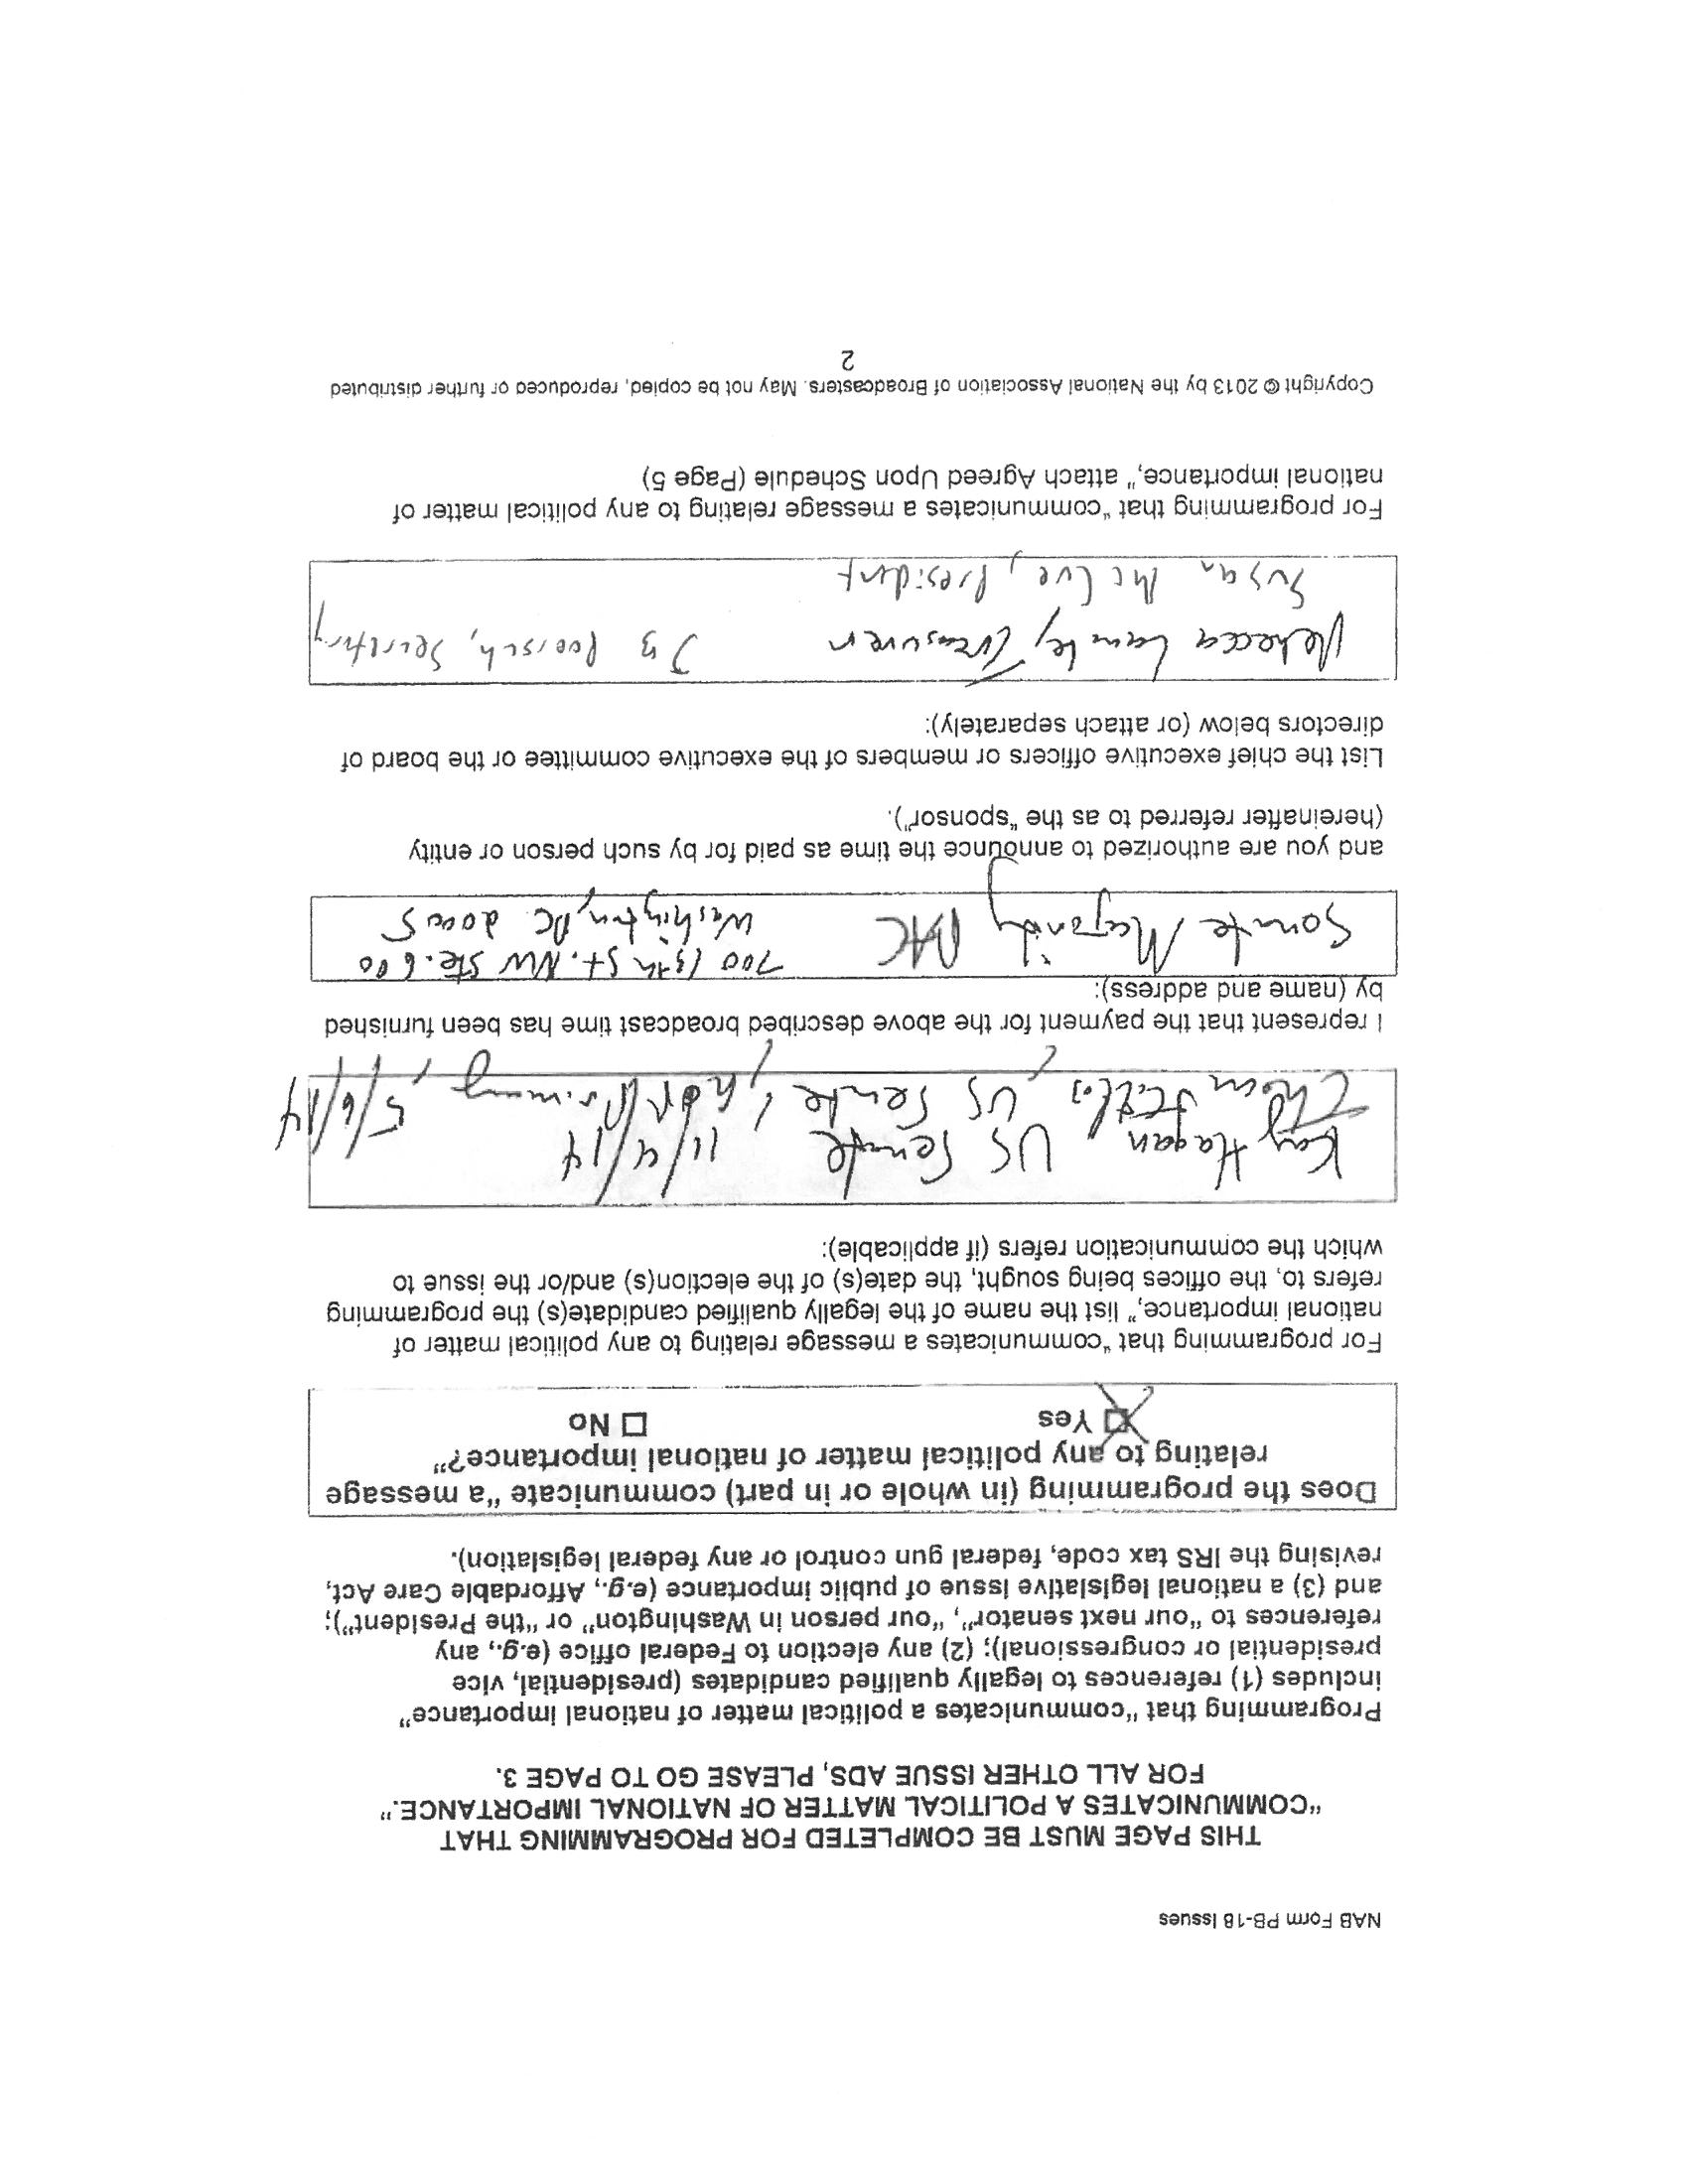 NAB Form PB-18 Issues
THIS PAGE MUST BE COMPLETED FOR PROGRAMMING THAT
"COMMUNICATES A POLITICAL MATTER OF NATIONAL IMPORTANCE."
FOR ALL OTHER ISSUE ADS, PLEASE GO TO PAGE 3.
Programming that "communicates a political matter of national importance"
includes (1) references to legally qualified candidates (presidential, vice
presidential or congressional); (2) any election to Federal office (e.g., any
references to "our next senator", "our person in Washington" or "the President");
and (3) a national legislative issue of public importance (e.g., Affordable Care Act,
revising the IRS tax code, federal gun control or any federal legislation).
Does the programming (in whole or in part) communicate "a message
relating to any political matter of national importance?"
Yes No
For programming that "communicates a message relating to any political matter of
national importance," list the name of the legally qualified candidate(s) the programming
refers to, the offices being sought, the date(s) of the election(s) and/or the issue to
which the communication refers (if applicable):
Kay Hagan US Senate 11/4/14
Thom Tillis, US Senate, Primary, 5/6/14
I represent that the payment for the above described broadcast time has been furnished
by (name and address):
Senate Majority PAC 700 13th St. NW Ste. 600
Washington, DC 20005
and you are authorized to announce the time as paid for by such person or entity
(hereinafter referred to as the "sponsor").
List the chief executive officers or members of the executive committee or the board of
directors below (or attach separately):
Rebecca Lambe, Treasurer JB Poersch, Secretary
Susan McCue, President
For programming that "communicates a message relating to any political matter of
national importance," attach Agreed Upon Schedule (Page 5)
Copyright © 2013 by the National Association of Broadcasters. May not be copied, reproduced or further distributed
2